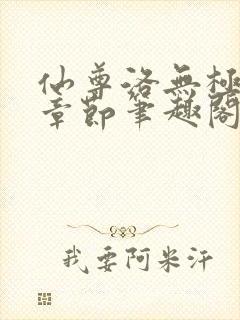 仙尊洛無極
章節筆趣閣
我要阿米汗